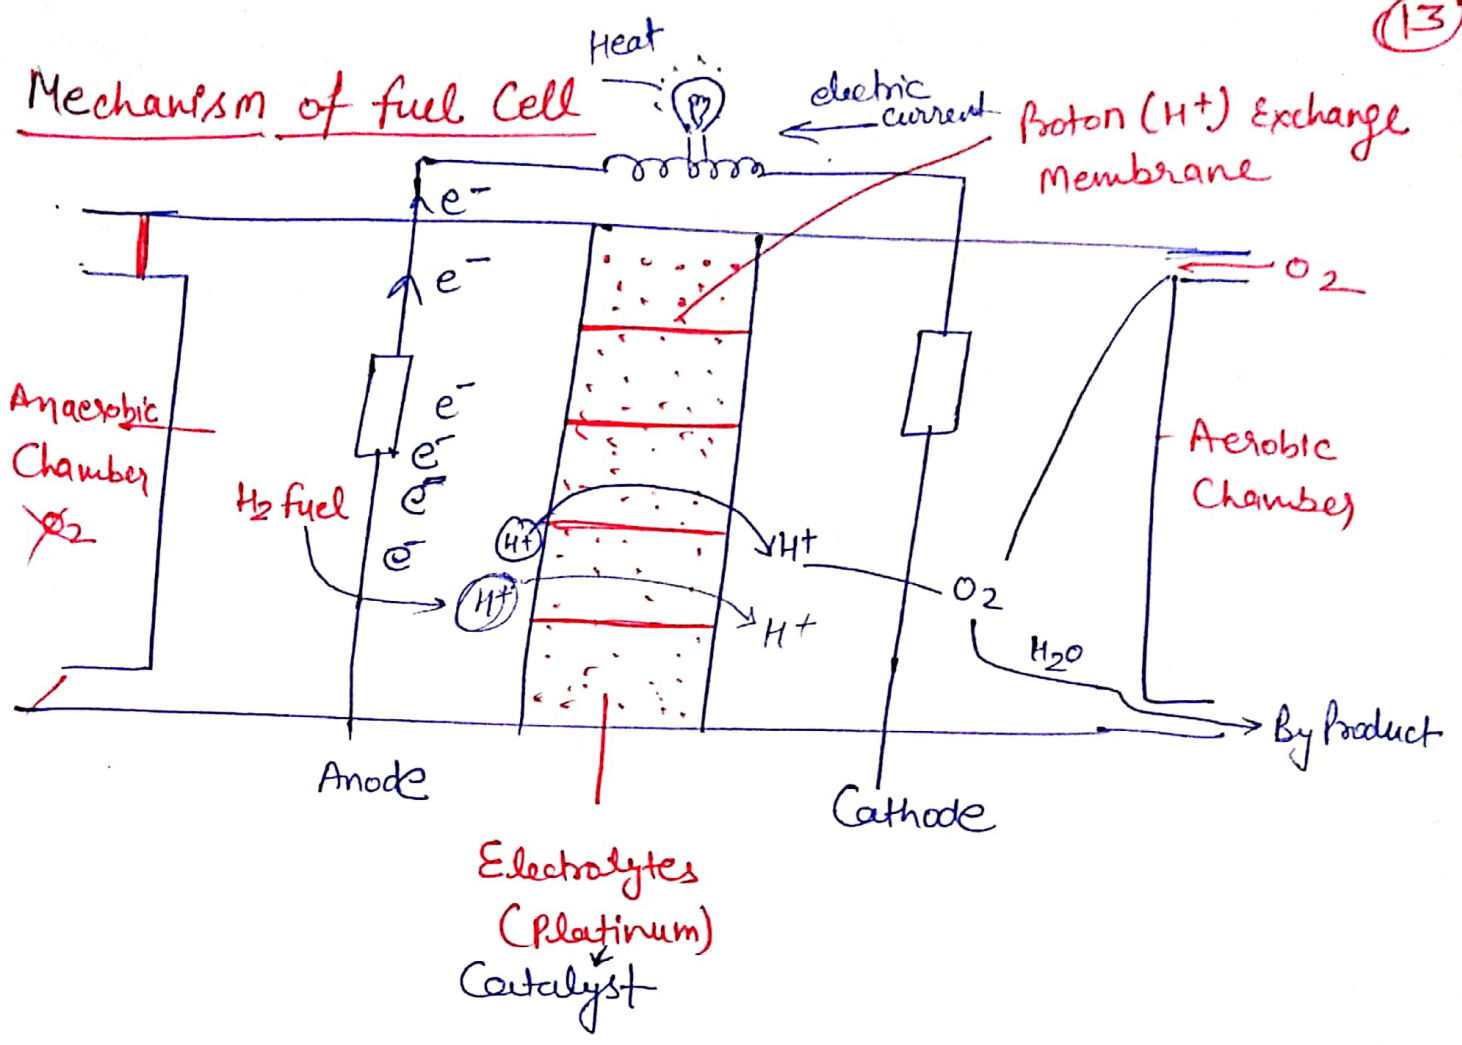 13
Mechanism of fuel Cell
Heat
electric
current
Proton (H+) Exchange
Membrane
e-
e-
O2
e-
e-
e-
e-
Anaerobic
Chamber
O2
H2 fuel
H+
H+
H+
H+
O2
H2O
Aerobic
Chamber
By Product
Anode
Cathode
Electrolytes
(Platinum)
Catalyst